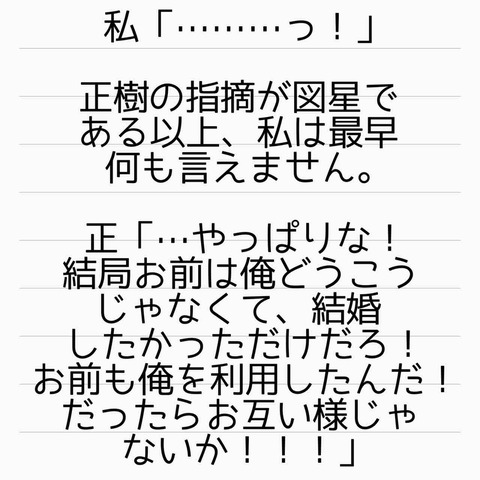 私「………っ！」
正樹の指摘が図星で
ある以上、私は最早
何も言えません。
正「…やっぱりな！
結局お前は俺どうこう
じゃなくて、結婚
したかっただけだろ！
お前も俺を利用したんだ！
だったらお互い様じゃ
ないか！！！」